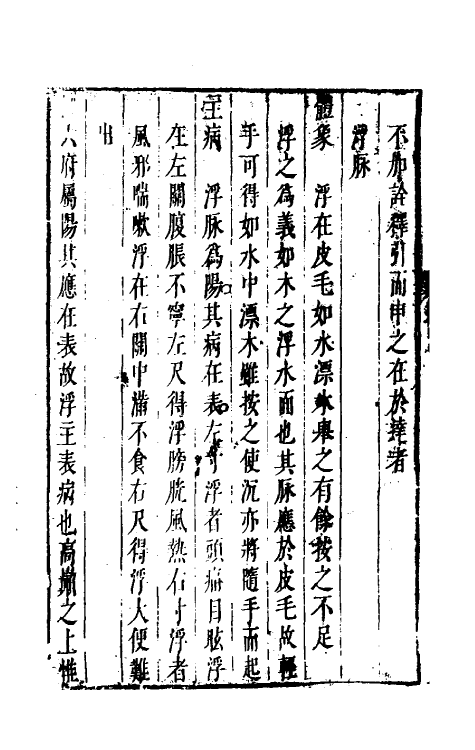 不加詮釋引而申之在於達者
浮脉
體象　浮在皮毛如水漂木舉之有餘按之不足
浮之為義如木之浮水面也其脉應於皮毛故輕
手可得如水中漂木雖按之使沉亦將隨手而起
主病　浮脉為陽其病在表左寸浮者頭痛目眩浮
在左關腹脹不寧左尺得浮膀胱風熱右寸浮者
風邪喘嗽浮在右關中滿不食右尺得浮大便難
出
六府屬陽其應在表故浮主表病也高巔之上惟